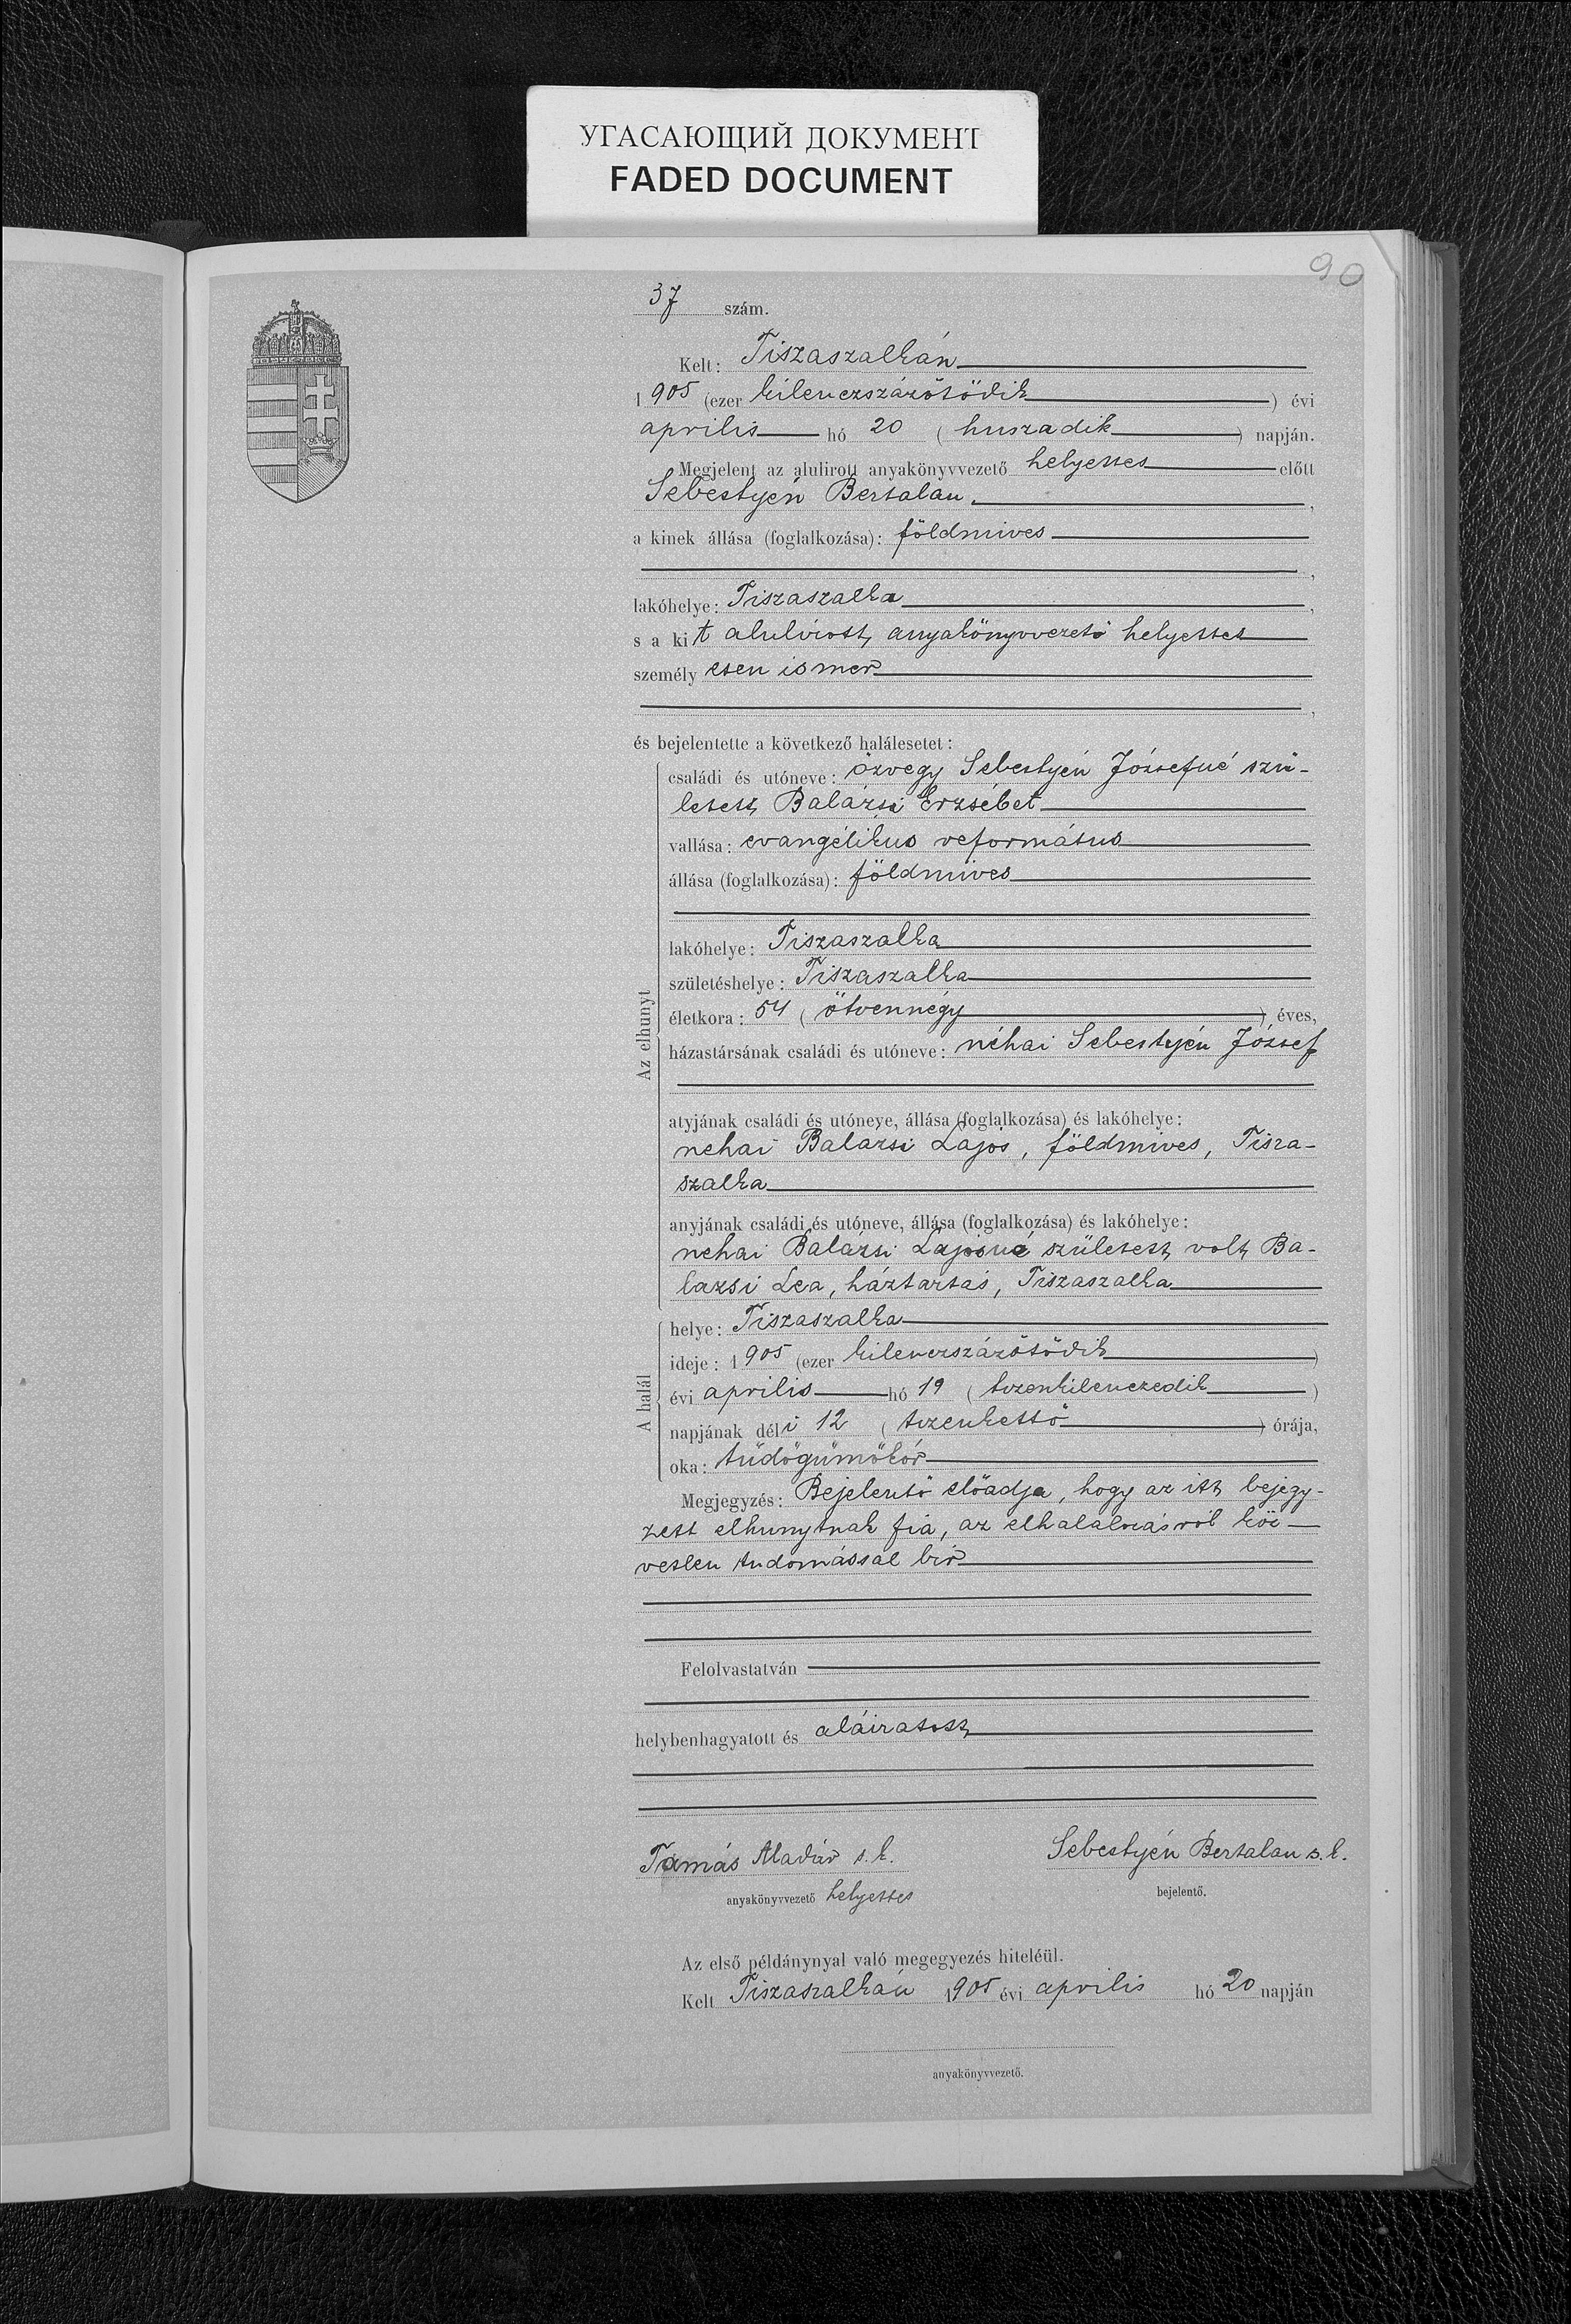 УГАСАЮЩИЙ ДОКУМЕНТ
FADED DOCUMENT
90
37 szám.
Kelt: Tiszaszalkán
1905 (ezer kilenczszázötödik) évi
aprilis hó 20 (huszadik) napján.
Megjelent az alulirott anyakönyvvezető helyettes előtt
Sebestyén Bertalan,
a kinek állása (foglalkozása): földmives
,
lakóhelye: Tiszaszalka,
s a kit alulirott anyakönyvvezető helyettes
személyesen ismer
,
és bejelentette a következő halálesetet:
Az elhunyt
családi és utóneve: özvegy Sebestyén Józsefné szü-
letett Balázsi Erzsébet
vallása: evangélikus református
állása (foglalkozása): földmives
lakóhelye: Tiszaszalka
születéshelye: Tiszaszalka
életkora: 54 (ötvennégy) éves,
házastársának családi és utóneve: néhai Sebestyén József
atyjának családi és utóneve, állása (foglalkozása) és lakóhelye:
néhai Balazsi Lajos, földmives, Tisza-
szalka
anyjának családi és utóneve, állása (foglalkozása) és lakóhelye:
néhai Balázsi Lajosné született volt Ba-
lazsi Lea, háztartás, Tiszaszalka
A halál
helye: Tiszaszalka
ideje: 1905 (ezer kilenczszázötödik)
évi aprilis hó 19 (tizenkilenczedik)
napjának déli 12 (tizenkettő) órája,
oka: tüdőgümőkór
Megjegyzés: Bejelentő előadja, hogy az itt bejegy-
zett elhunytnak fia, az elhalálozásról köz-
vetlen tudomással bir
Felolvastatván
helybenhagyatott és aláiratott
Tamás Aladár s. k.
anyakönyvvezető helyettes
Sebestyén Bertalan s. k.
bejelentő.
Az első példánynyal való megegyezés hiteléül.
Kelt Tiszaszalkán 1905 évi aprilis hó 20 napján
anyakönyvvezető.